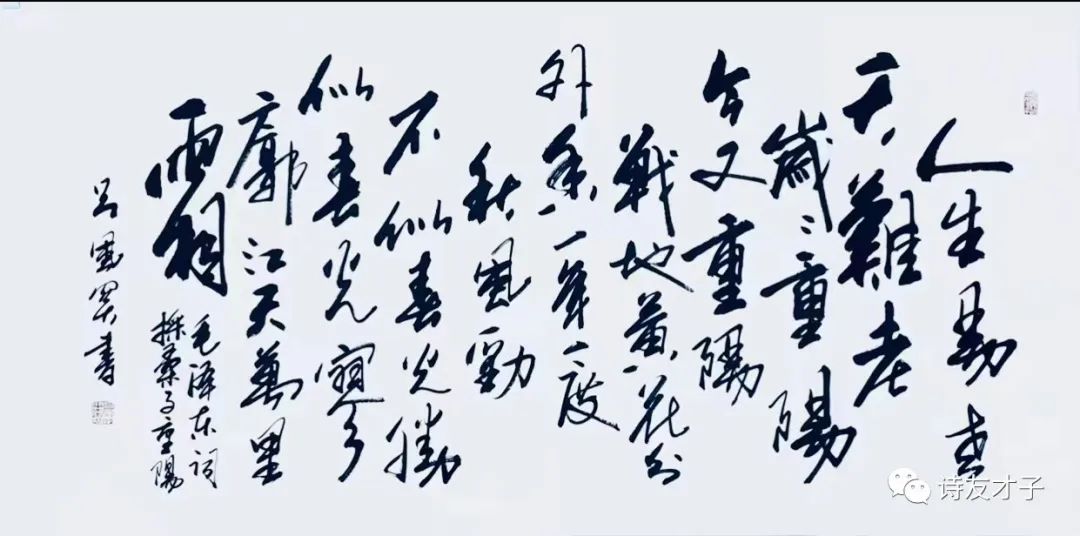 人生易老
天難老
歲々重陽
今又重陽
戰地黄花分
外香一年一度
秋風勁
不似春光勝
似春光寥
廓江天萬里
霜
毛泽东词
採桑子重陽
書
诗友才子